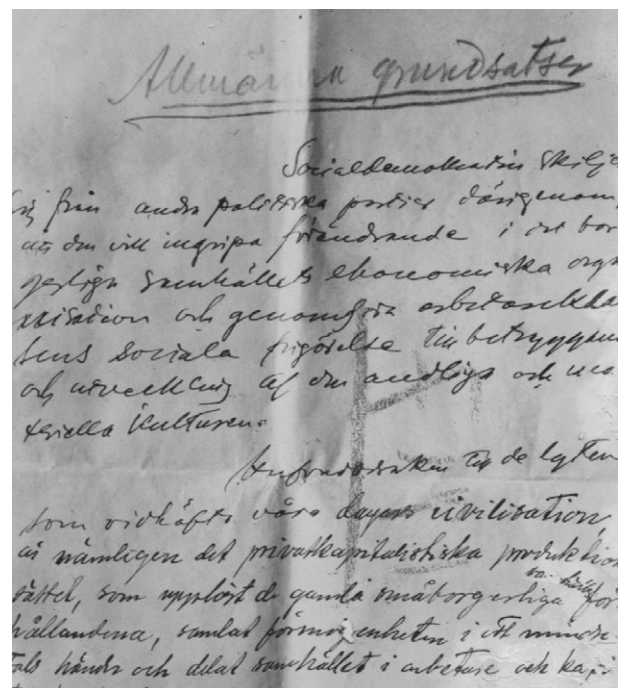 Allmänna grundsatser
Socialdemokratin skilje
sig från andra politiska partier därigenom,
att den vill ingripa förändrande i det bor
gerliga samhällets ekonomiska orga
nisation och genomföra arbetareklas
sens sociala frigörelse till betryggan
och utveckling af den andliga och ma
teriella kulturen.
Hufvudorsaken till de lyten
som vidhäfta våra dagars civilisation,
är nämligen det privatkapitalistiska produktion
sättet, som upplöst de gamla småborgerliga för
hållandena, samlat förmögenheten i ett mindre
tals händer och delat samhället i arbetare och kapi